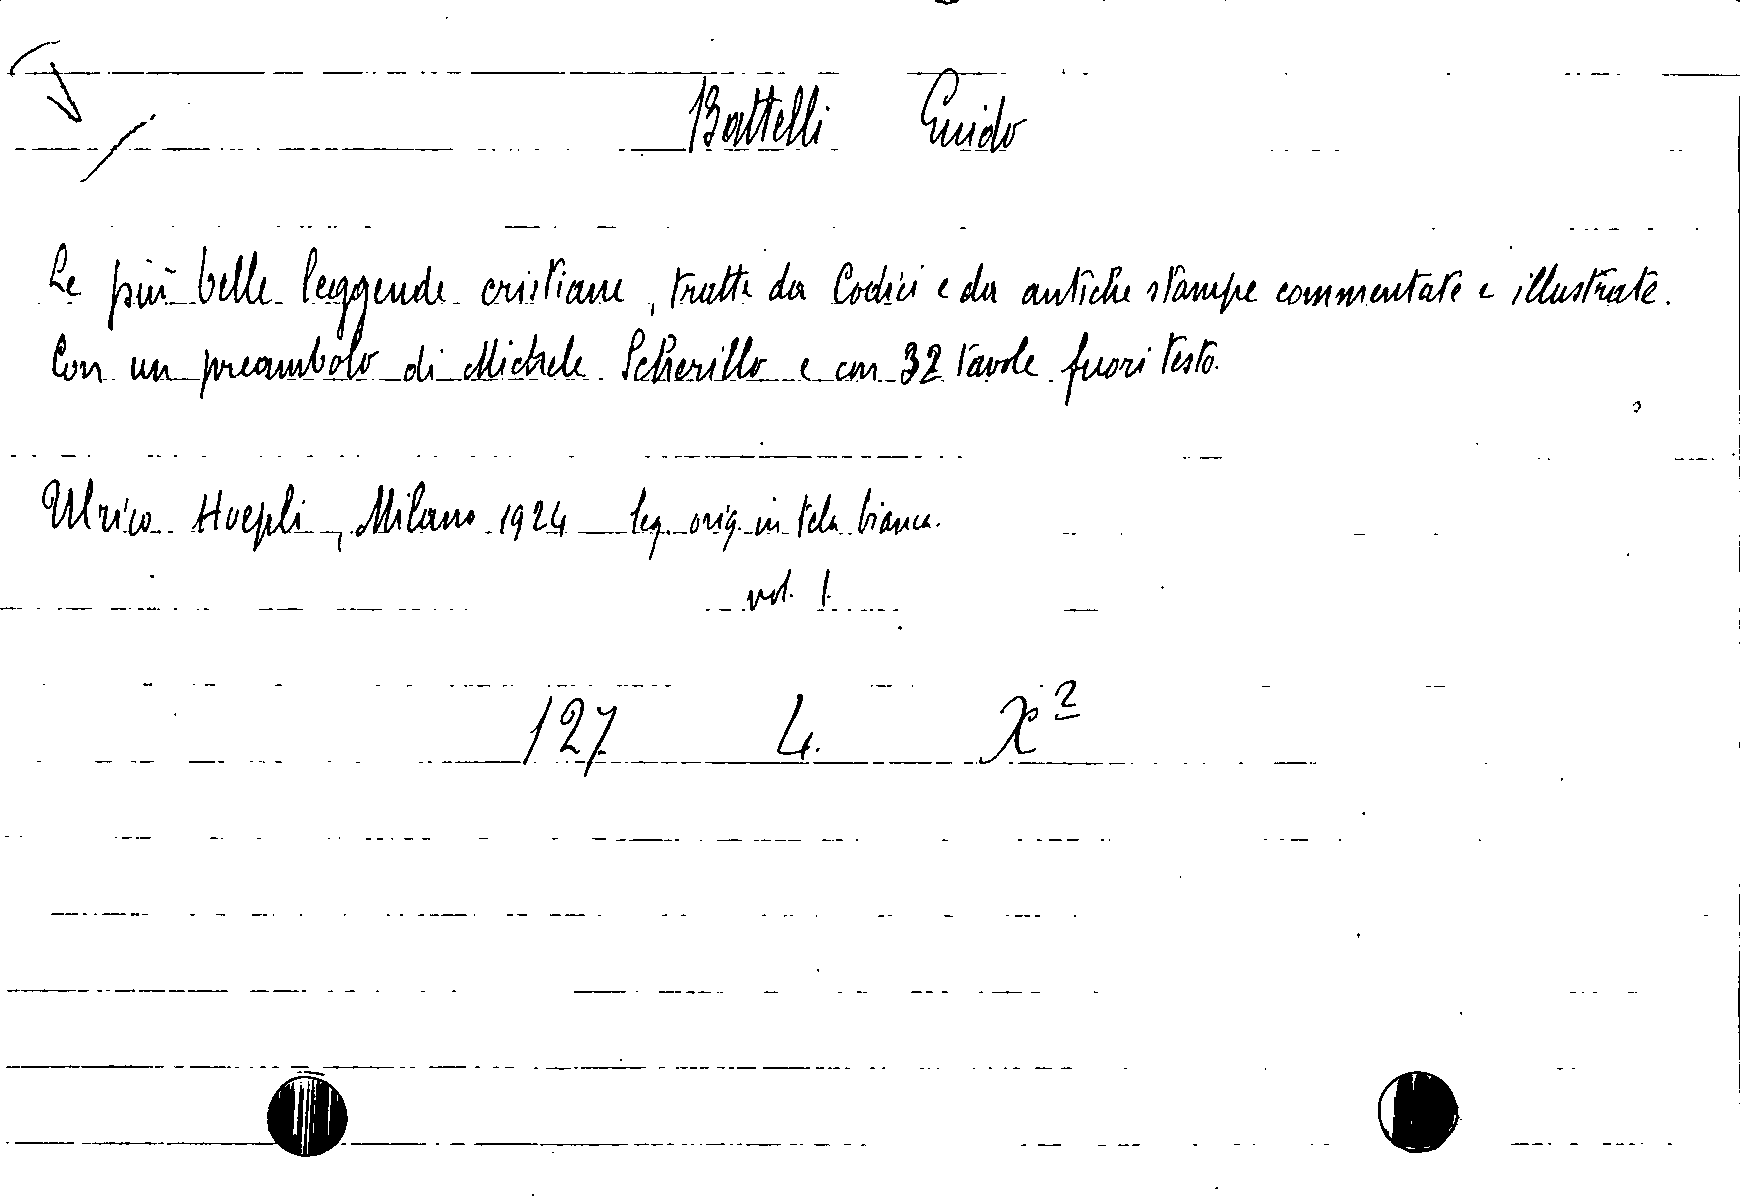 Battelli Guido
Le più belle leggende cristiane, tratte da Codici e da antiche stampe commentate e illustrate.
Con un preambolo di Michele Scherillo e con 32 tavole fuori testo.
Ulrico Hoepli, Milano 1924 leg. orig. in tela bianca.
vol. 1.
127 4. X²